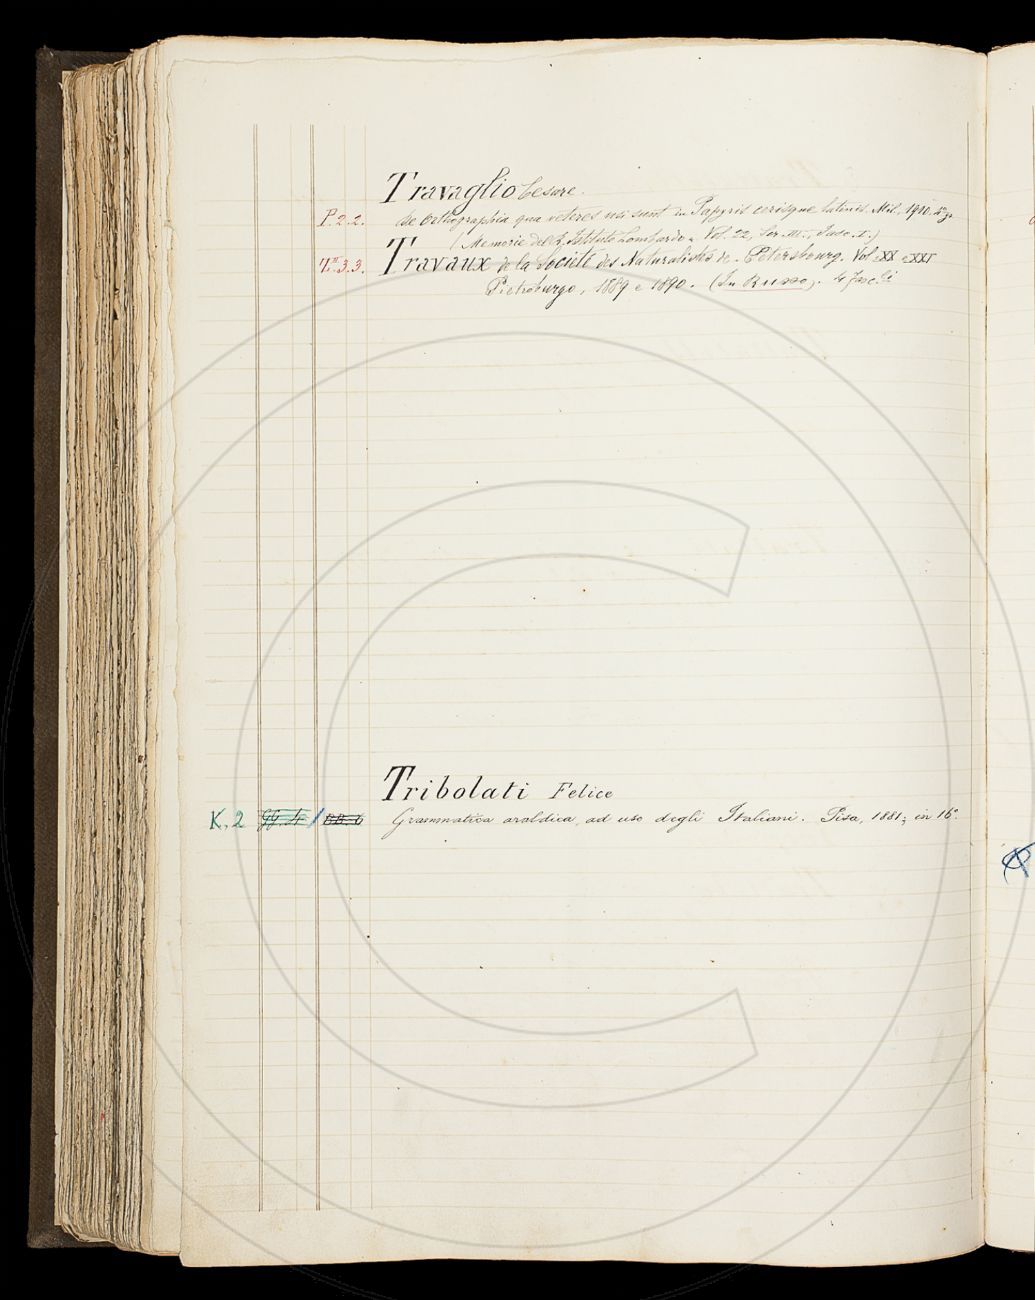 Travaglio Cesare.
P.2.2. de Orthographia qua veteres usi sunt in Papyris cerisque latinis. Mil., 1910. in 4º gr.
(Memorie del R. Istituto Lombardo Vol. 22, Ser. III, Fasc. I.)
3.3. Travaux de la Société des Naturalistes de Pétersbourg. Vol. XX e XXI
Pietroburgo, 1889 e 1890. (In Russo). 4 Fasc.li
Tribolati Felice
K, 2 Grammatica araldica, ad uso degli Italiani. Pisa, 1881; in 16º.